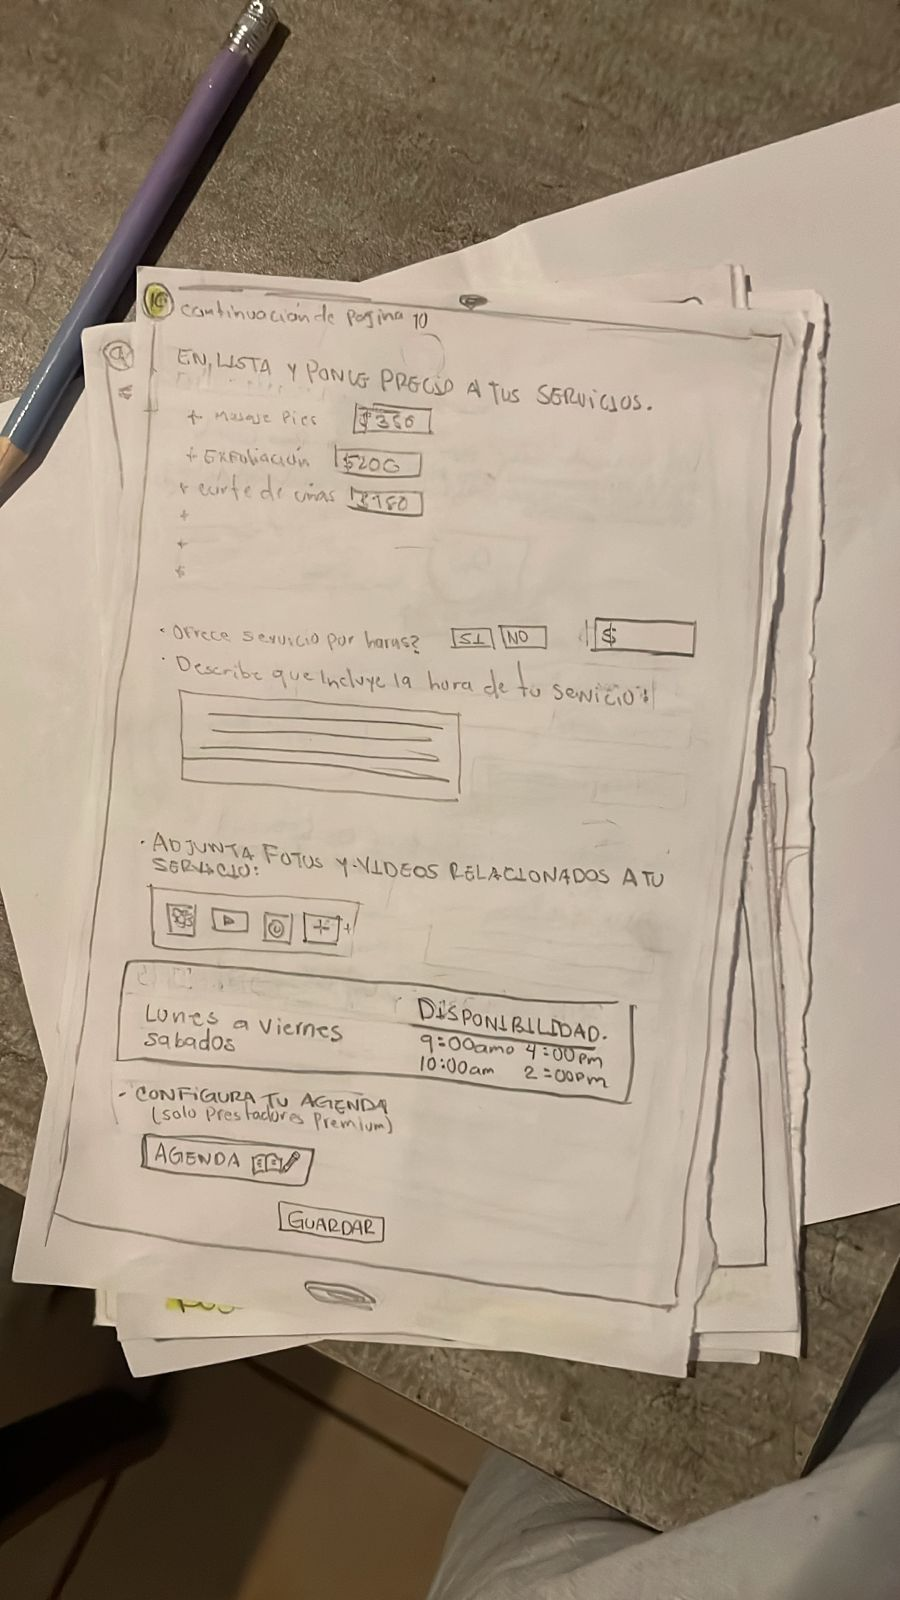 10 continuación de pagina 10
EN,LISTA Y PONLE PRECIO A TUS SERVICIOS.
+ Masaje Pies $350
+ Exfoliación $200
+ corte de uñas $180
+
+
$
· Ofrece servicio por horas? SI NO $
· Describe que incluye la hora de tu servicio:
· ADJUNTA FOTOS Y VIDEOS RELACIONADOS A TU
SERVICIO:
DISPONIBILIDAD.
Lunes a viernes 9:00am a 4:00pm
sabados 10:00am 2:00pm
- CONFIGURA TU AGENDA
(solo prestadores premium)
AGENDA
GUARDAR